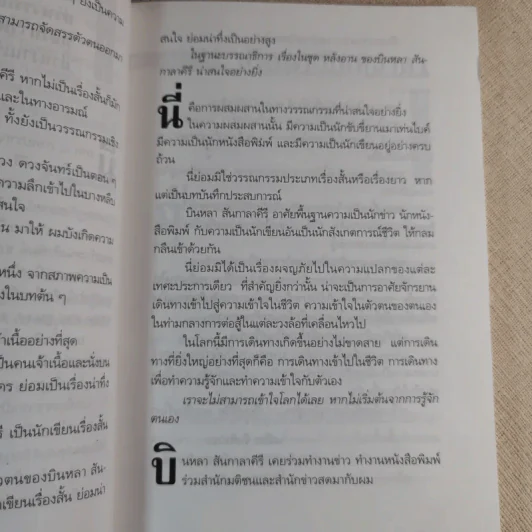 ๆ ยังเป็นความ
สามารถจัดสรรตัวตนออกมา
คีรี หากไม่เป็นเรื่องสั้นก็มัก
และในทางอารมณ์
ทั้งยังเป็นวรรณกรรมเชิง
วง ดวงจันทร์เป็นตอน ๆ
ความลึกเข้าไปในบางหลืบ
สนใจ
น มาให้ ผมบังเกิดความ
หนึ่ง จากสภาพความเป็น
งในบทต้น ๆ
จ้าเนื้ออย่างที่สุด
ป็นคนเจ้าเนื้อและนั่งบน
ตร ย่อมเป็นเรื่องน่าทึ่ง
รี เป็นนักเขียนเรื่องสั้น
วตนของบินหลา สัน-
าเขียนเรื่องสั้น ย่อมน่า
สนใจ ย่อมน่าทึ่งเป็นอย่างสูง
ในฐานะบรรณาธิการ เรื่องในชุด หลังอาน ของบินหลา สัน-
กาลาคีรี น่าสนใจอย่างยิ่ง
นี่ คือการผสมผสานในทางวรรณกรรมที่น่าสนใจอย่างยิ่ง
ในความผสมผสานนั้น มีความเป็นนักขับขี่ยานเมาเท่นไบค์
มีความเป็นนักหนังสือพิมพ์ และมีความเป็นนักเขียนอยู่อย่างครบ
ถ้วน
นี่ย่อมมิใช่วรรณกรรมประเภทเรื่องสั้นหรือเรื่องยาว หาก
แต่เป็นบทบันทึกประสบการณ์
บินหลา สันกาลาคีรี อาศัยพื้นฐานความเป็นนักข่าว นักหนัง-
สือพิมพ์ กับความเป็นนักเขียนอันเป็นนักสังเกตการณ์ชีวิต ให้กลม
กลืนเข้าด้วยกัน
นี่ย่อมมิได้เป็นเรื่องผจญภัยไปในความแปลกของแต่ละ
เทศะประการเดียว ที่สำคัญยิ่งกว่านั้น น่าจะเป็นการอาศัยจักรยาน
เดินทางเข้าไปสู่ความเข้าใจในชีวิต ความเข้าใจในตัวตนของตนเอง
ในท่ามกลางการต่อสู้ในแต่ละวงล้อที่เคลื่อนไหวไป
ในโลกนี้มีการเดินทางเกิดขึ้นอย่างไม่ขาดสาย แต่การเดิน
ทางที่ยิ่งใหญ่อย่างที่สุดก็คือ การเดินทางเข้าไปในชีวิต การเดินทาง
เพื่อทำความรู้จักและทำความเข้าใจกับตัวเอง
เราจะไม่สามารถเข้าใจโลกได้เลย หากไม่เริ่มต้นจากการรู้จัก
ตนเอง
บินหลา สันกาลาคีรี เคยร่วมทำงานข่าว ทำงานหนังสือพิมพ์
ร่วมสำนักมติชนและสำนักข่าวสดมากับผม